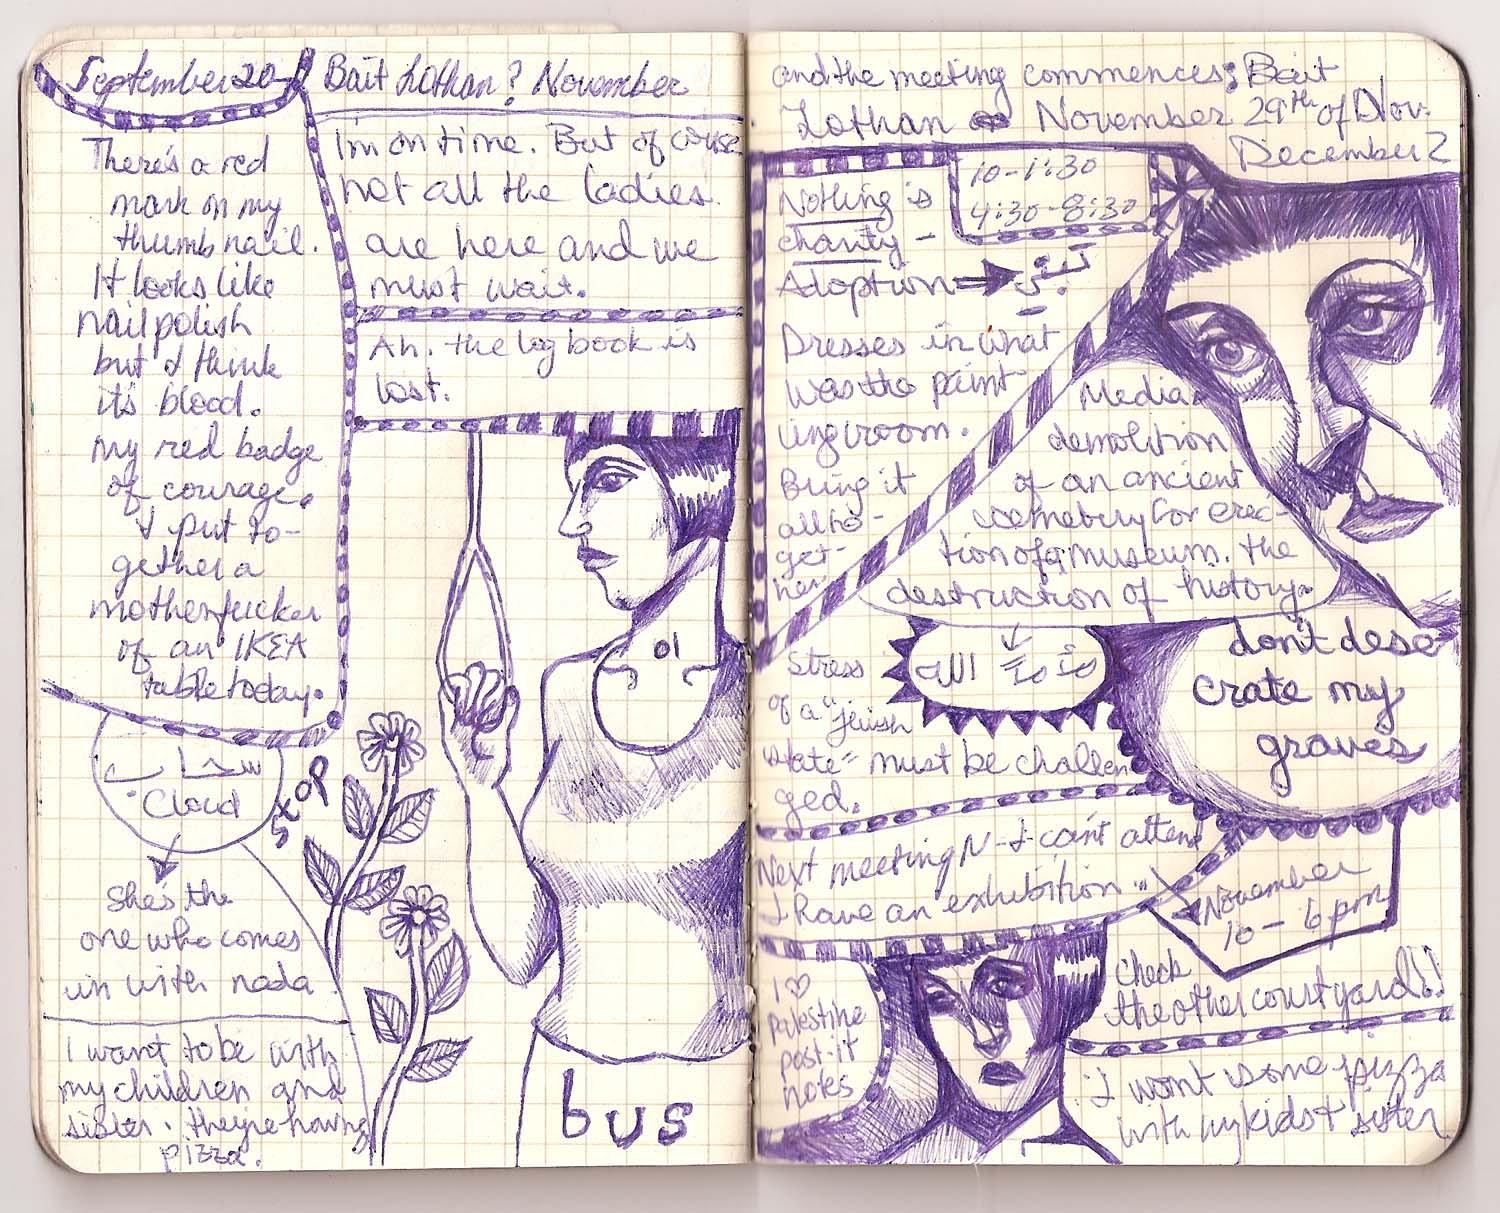 September 20
There's a red
mark on my
thumb nail.
It looks like
nail polish
but I think
it's blood.
my red badge
of courage.
I put to-
gether a
motherfucker
of an IKEA
table today.
سحاب
Cloud
she's the
one who comes
in with nada
I want to be with
my children and
sister. they're having
pizza.
Bait Lothan? November
I'm on time. But of couse
not all the ladies
are here and we
must wait.
Ah. the log book is
lost.
bus
and the meeting commences: Bait
Lothan November 29th of Nov.
December 2
10-1:30
4:30-8:30
Nothing is
charity -
Adoption
Dresses in what
was the paint
ing room.
Bring it
all to-
get-
her
Media
demolition
of an ancient
cemetery for erec-
tion of a museum. the
destruction of history.
don't dese
crate my
graves
Stress
of a "jewish
state" must be challen
ged.
Next meeting N - I can't attend
I have an exhibition
November
10 - 6 pm
Check
the other courtyard!!
I ♡
palestine
post-it
notes
I want some pizza
with my kids + sister